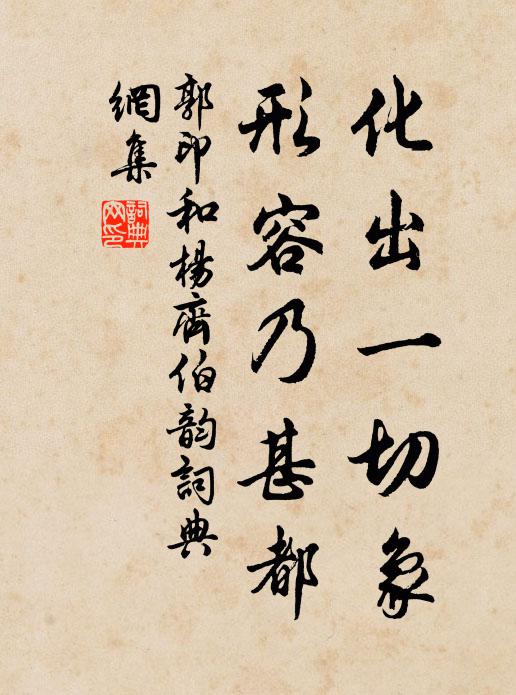 化出一切象
形容乃甚都
郭印和楊齊伯韵詞典
網集
詞典
网印